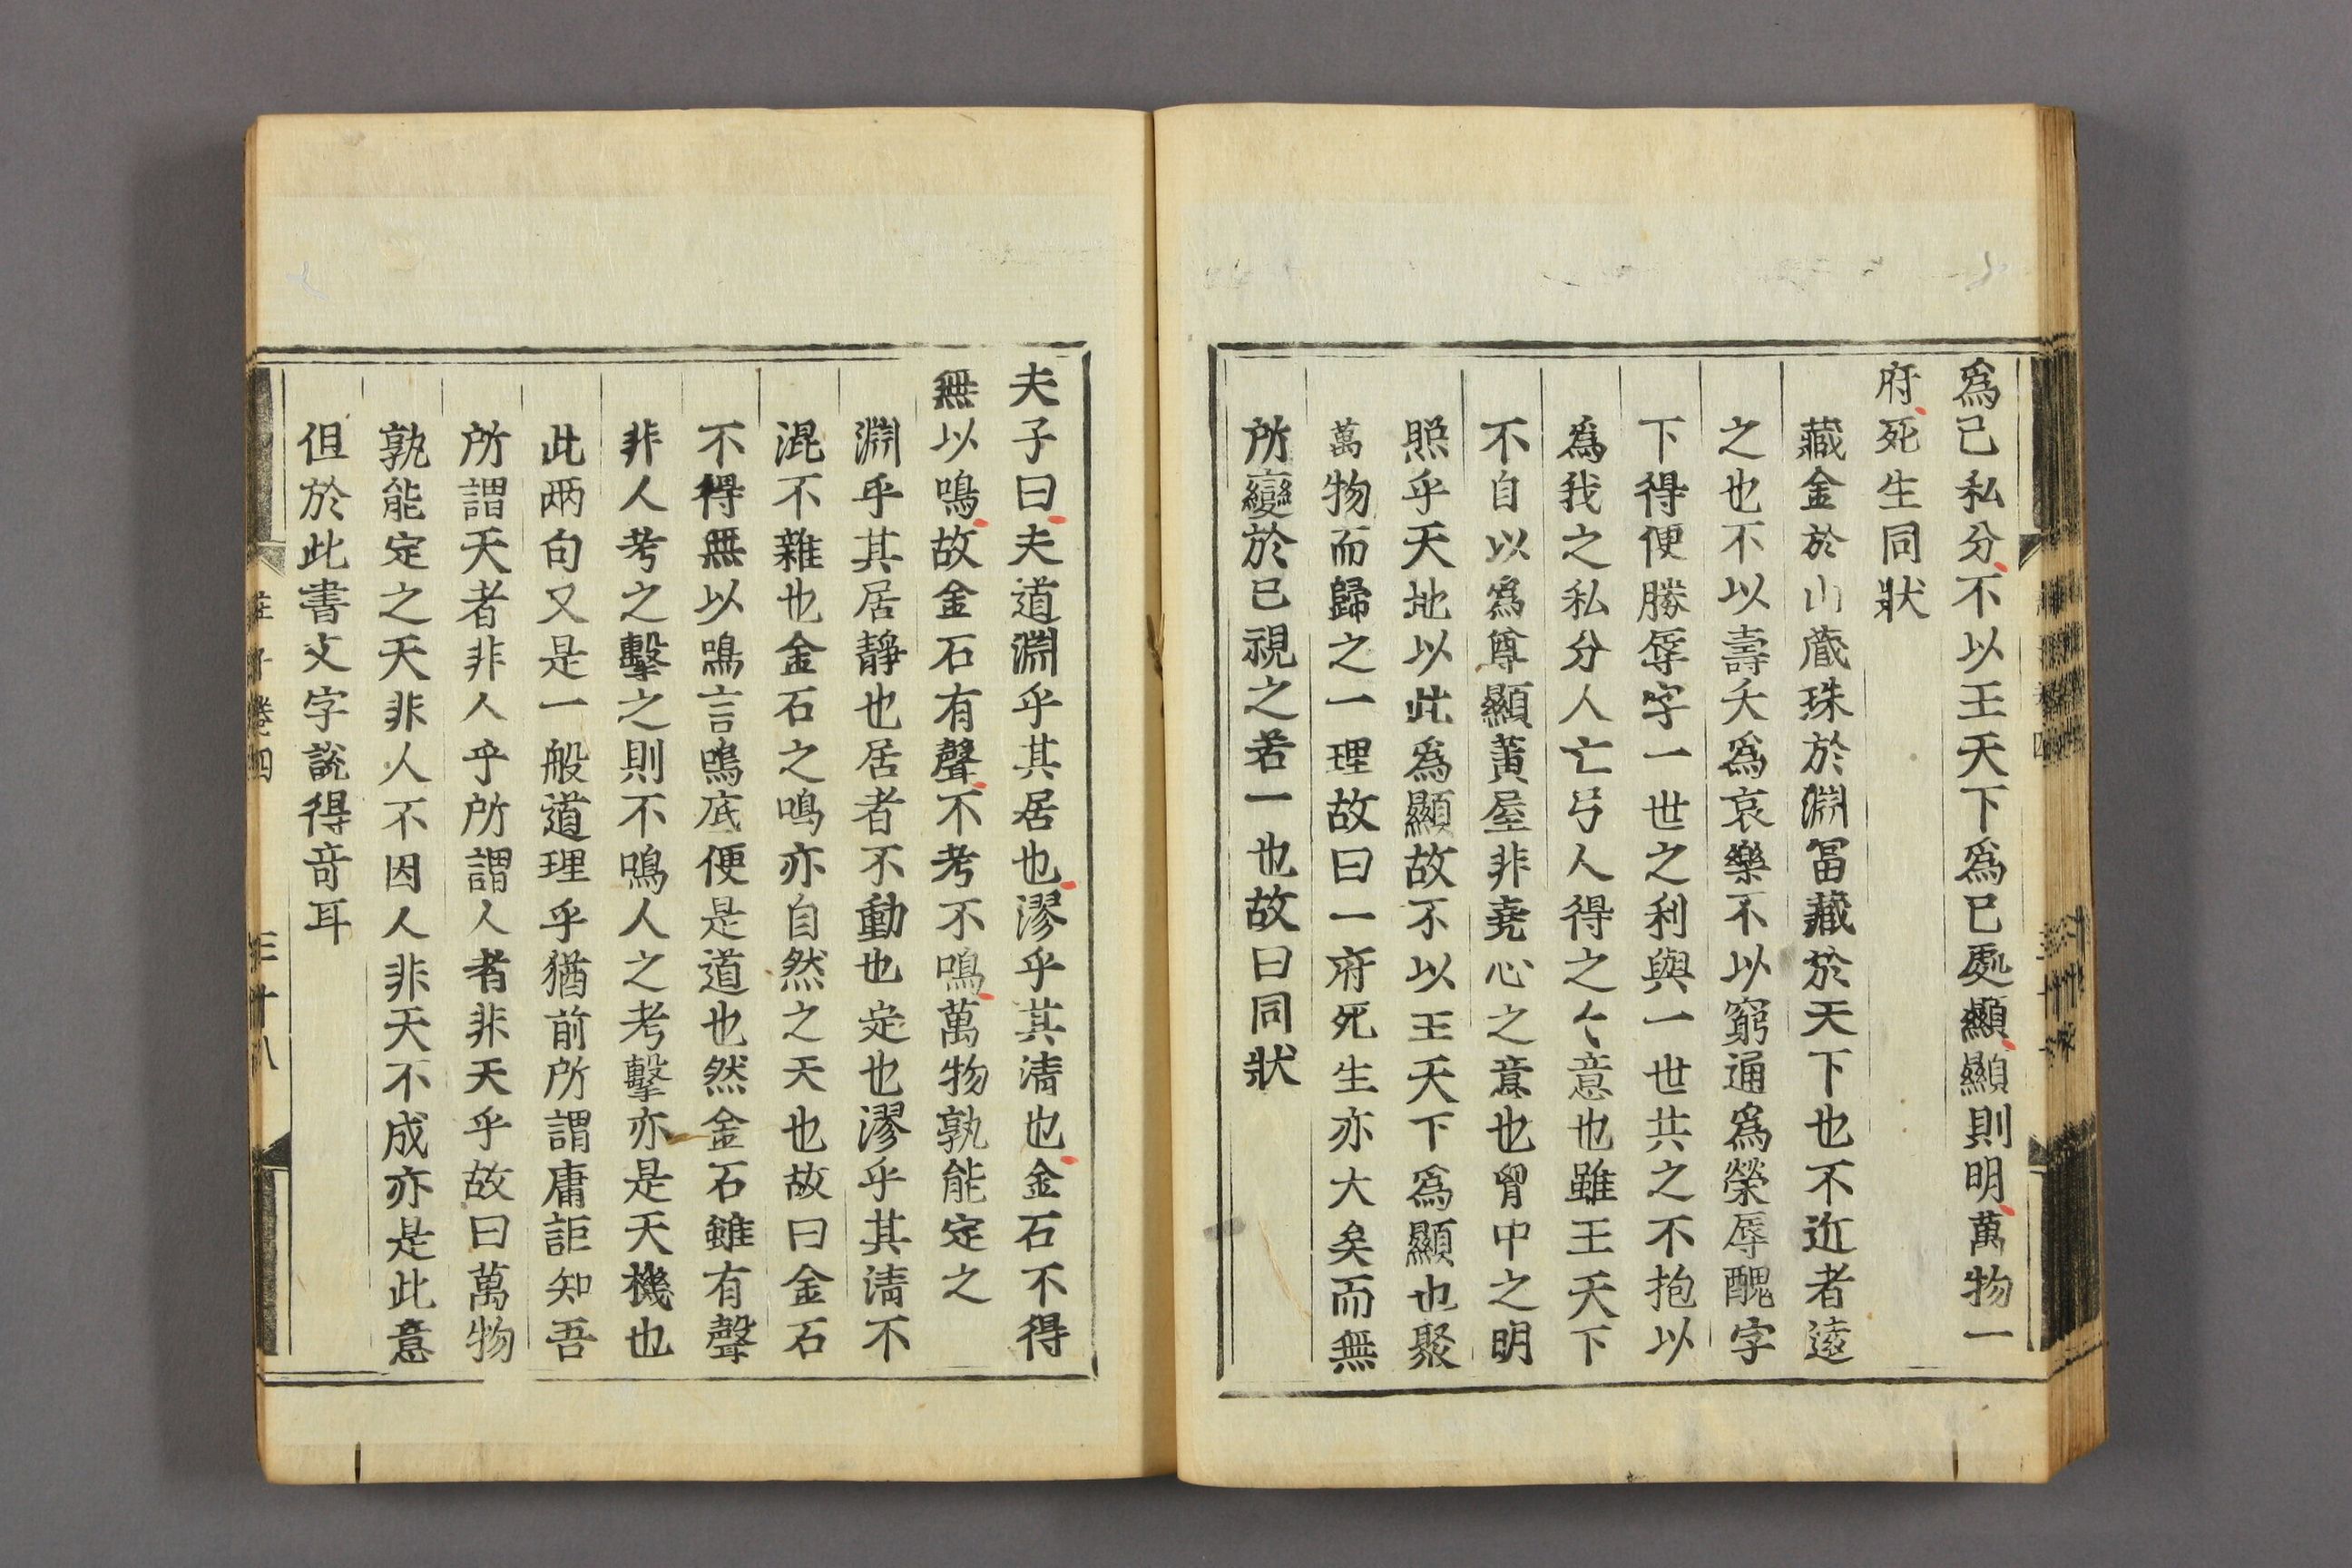 爲己私分不以王天下爲已處顯顯則明萬物一
府死生同狀
藏金於山藏珠於淵冨藏於天下也不近者遠
之也不以壽夭爲哀樂不以窮通爲榮辱醜字
下得便勝辱字一世之利與一世共之不抱以
爲我之私分人亡弓人得之之意也雖王天下
不自以爲尊顯黃屋非堯心之意也胷中之明
照乎天地以此爲顯故不以王天下爲顯也聚
萬物而歸之一理故曰一府死生亦大矣而無
所變於已視之若一也故曰同狀
夫子曰夫道淵乎其居也漻乎其清也金石不得
無以鳴故金石有聲不考不鳴萬物孰能定之
淵乎其居靜也居者不動也定也漻乎其清不
混不雜也金石之鳴亦自然之天也故曰金石
不得無以鳴言鳴底便是道也然金石雖有聲
非人考之擊之則不鳴人之考擊亦是天機也
此兩句又是一般道理乎猶前所謂庸詎知吾
所謂天者非人乎所謂人者非天乎故曰萬物
孰能定之天非人不因人非天不成亦是此意
但於此書文字說得奇耳
莊子卷四 三十八